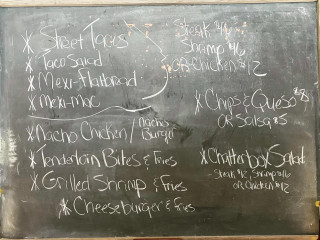 * Street Tacos
* Taco Salad
* Mexi-Flatbread
* Mexi-mac
Steak
Shrimp
or Chicken $12
* Nacho Chicken / nacho Burger
* Chips & Queso $8
OR Salsa $5
* Tenderloin Bites & Fries
* Chatterbox Salad
- Steak $12, Shrimp $16
or Chicken $12
* Grilled Shrimp & Fries
* Cheeseburger & Fries